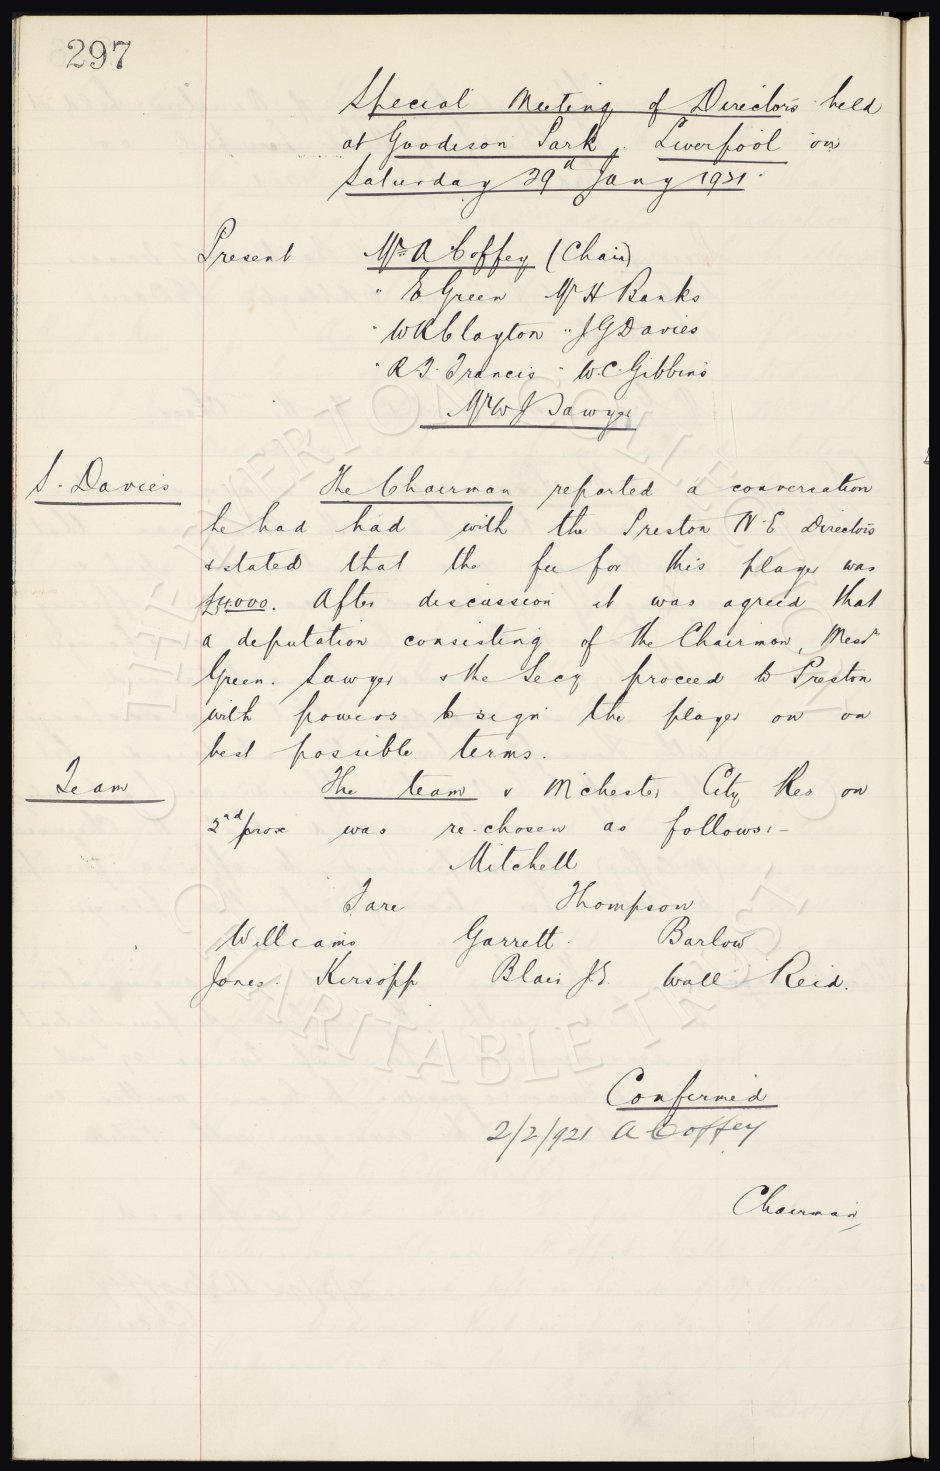 297
Special Meeting of Directors held
at Goodison Park, Liverpool on
Saturday 29th Jany 1921.
Present Mr. A Coffey (Chair)
" E Green Mr H Banks
" W R Clayton " J G Davies
" R T. Francis " W. C. Gibbins
Mr W J Sawyer
S. Davies The Chairman reported a conversation
he had had with the Preston N. E Directors
& stated that the fee for this player was
£4000. After discussion it was agreed that
a deputation consisting of the Chairman, Messrs
Green. Sawyer & the Secy proceed to Preston
with powers to sign the player on on
best possible terms.
Team The team v Mchester City Res on
2nd prox was re-chosen as follows:-
Mitchell
Fare Thompson
Williams Garrett. Barlow
Jones. Kirsopp Blair J.E. Wall Reid.
Confirmed
2/2/1921 A Coffey
Chairman
THE EVERTON COLLECTION
CHARITABLE TRUST